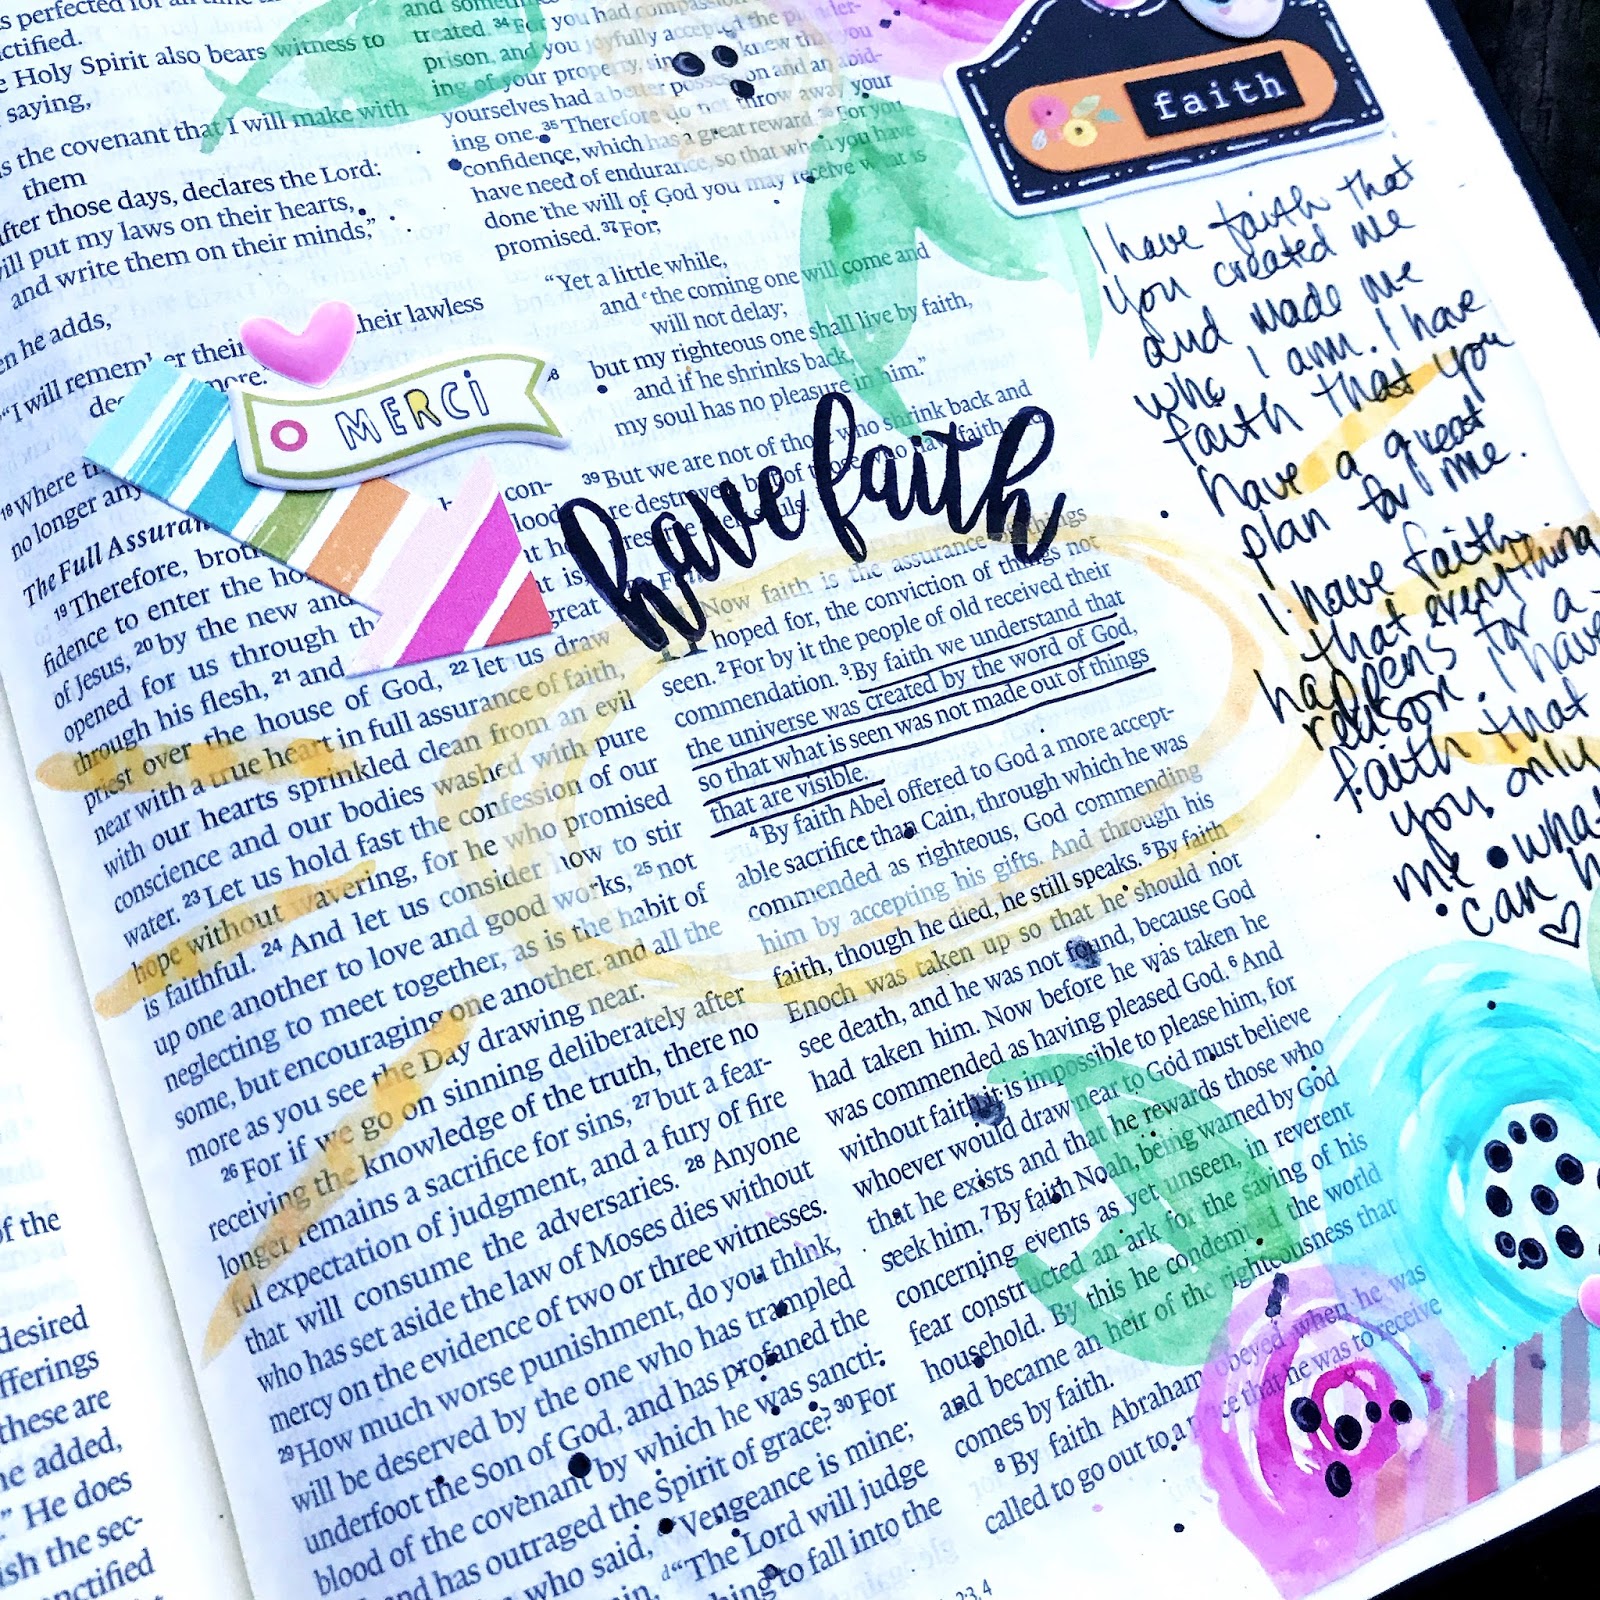 ctified.
e Holy Spirit also bears witness to
saying,
s the covenant that I will make with
them
after those days, declares the Lord:
will put my laws on their hearts,
and write them on their minds,”
en he adds,
“I will remember their heir lawless
more.”
MERCi
18 Where
no longer any
The Full Assuran
19 Therefore, brot
fidence to enter the ho
of Jesus, 20 by the new and
opened for us through th
through his flesh, 21 and great
priest over the house of God, 22 let us draw
near with a true heart in full assurance of faith,
with our hearts sprinkled clean from an evil
conscience and our bodies washed with pure
water. 23 Let us hold fast the confession of our
hope without wavering, for he who promised
is faithful. 24 And let us consider how to stir
up one another to love and good works, 25 not
neglecting to meet together, as is the habit of
some, but encouraging one another, and all the
more as you see the Day drawing near.
26 For if we go on sinning deliberately after
receiving the knowledge of the truth, there no
longer remains a sacrifice for sins, 27 but a fear-
ful expectation of judgment, and a fury of fire
that will consume the adversaries. 28 Anyone
who has set aside the law of Moses dies without
mercy on the evidence of two or three witnesses.
29 How much worse punishment, do you think,
will be deserved by the one who has trampled
underfoot the Son of God, and has profaned the
blood of the covenant by which he was sancti-
and has outraged the Spirit of grace? 30 For
who said, “Vengeance is mine;
d “The Lord will judge
hing to fall into the
treated. 34 For you had compassion
prison, and you joyfully accepted the plunder-
ing of your property, since knew that you
yourselves had a better possession and an abid-
ing one. 35 Therefore do not throw away your
confidence, which has a great reward. 36 For you
have need of endurance, so that when you have
done the will of God you may receive what is
promised. 37 For,
“Yet a little while,
and the coming one will come and
will not delay;
38 but my righteous one shall live by faith,
and if he shrinks back,
my soul has no pleasure in him.”
39 But we are not of those who shrink back and
are destroyed, but of those who have faith and
have faith
Now faith is the assurance of things
hoped for, the conviction of things not
seen. 2 For by it the people of old received their
commendation. 3 By faith we understand that
the universe was created by the word of God,
so that what is seen was not made out of things
that are visible.
4 By faith Abel offered to God a more accept-
able sacrifice than Cain, through which he was
commended as righteous, God commending
him by accepting his gifts. And through his
faith, though he died, he still speaks. 5 By faith
Enoch was taken up so that he should not
see death, and he was not found, because God
had taken him. Now before he was taken he
was commended as having pleased God. 6 And
without faith it is impossible to please him, for
whoever would draw near to God must believe
that he exists and that he rewards those who
seek him. 7 By faith Noah, being warned by God
concerning events as yet unseen, in reverent
fear constructed an ark for the saving of his
household. By this he condemned the world
and became an heir of the righteousness that
comes by faith.
8 By faith Abraham obeyed when he was
called to go out to a place that he was to receive
faith
I have faith that
you created me
and made me
who I am. I have
faith that you
have a great
plan for me.
I have faith
that everything
happens for a
reason. I have
faith that
you only
me what
can h
of the
desired
fferings
these are
he added,
” He does
ish the sec-
anctified
2:3, 4